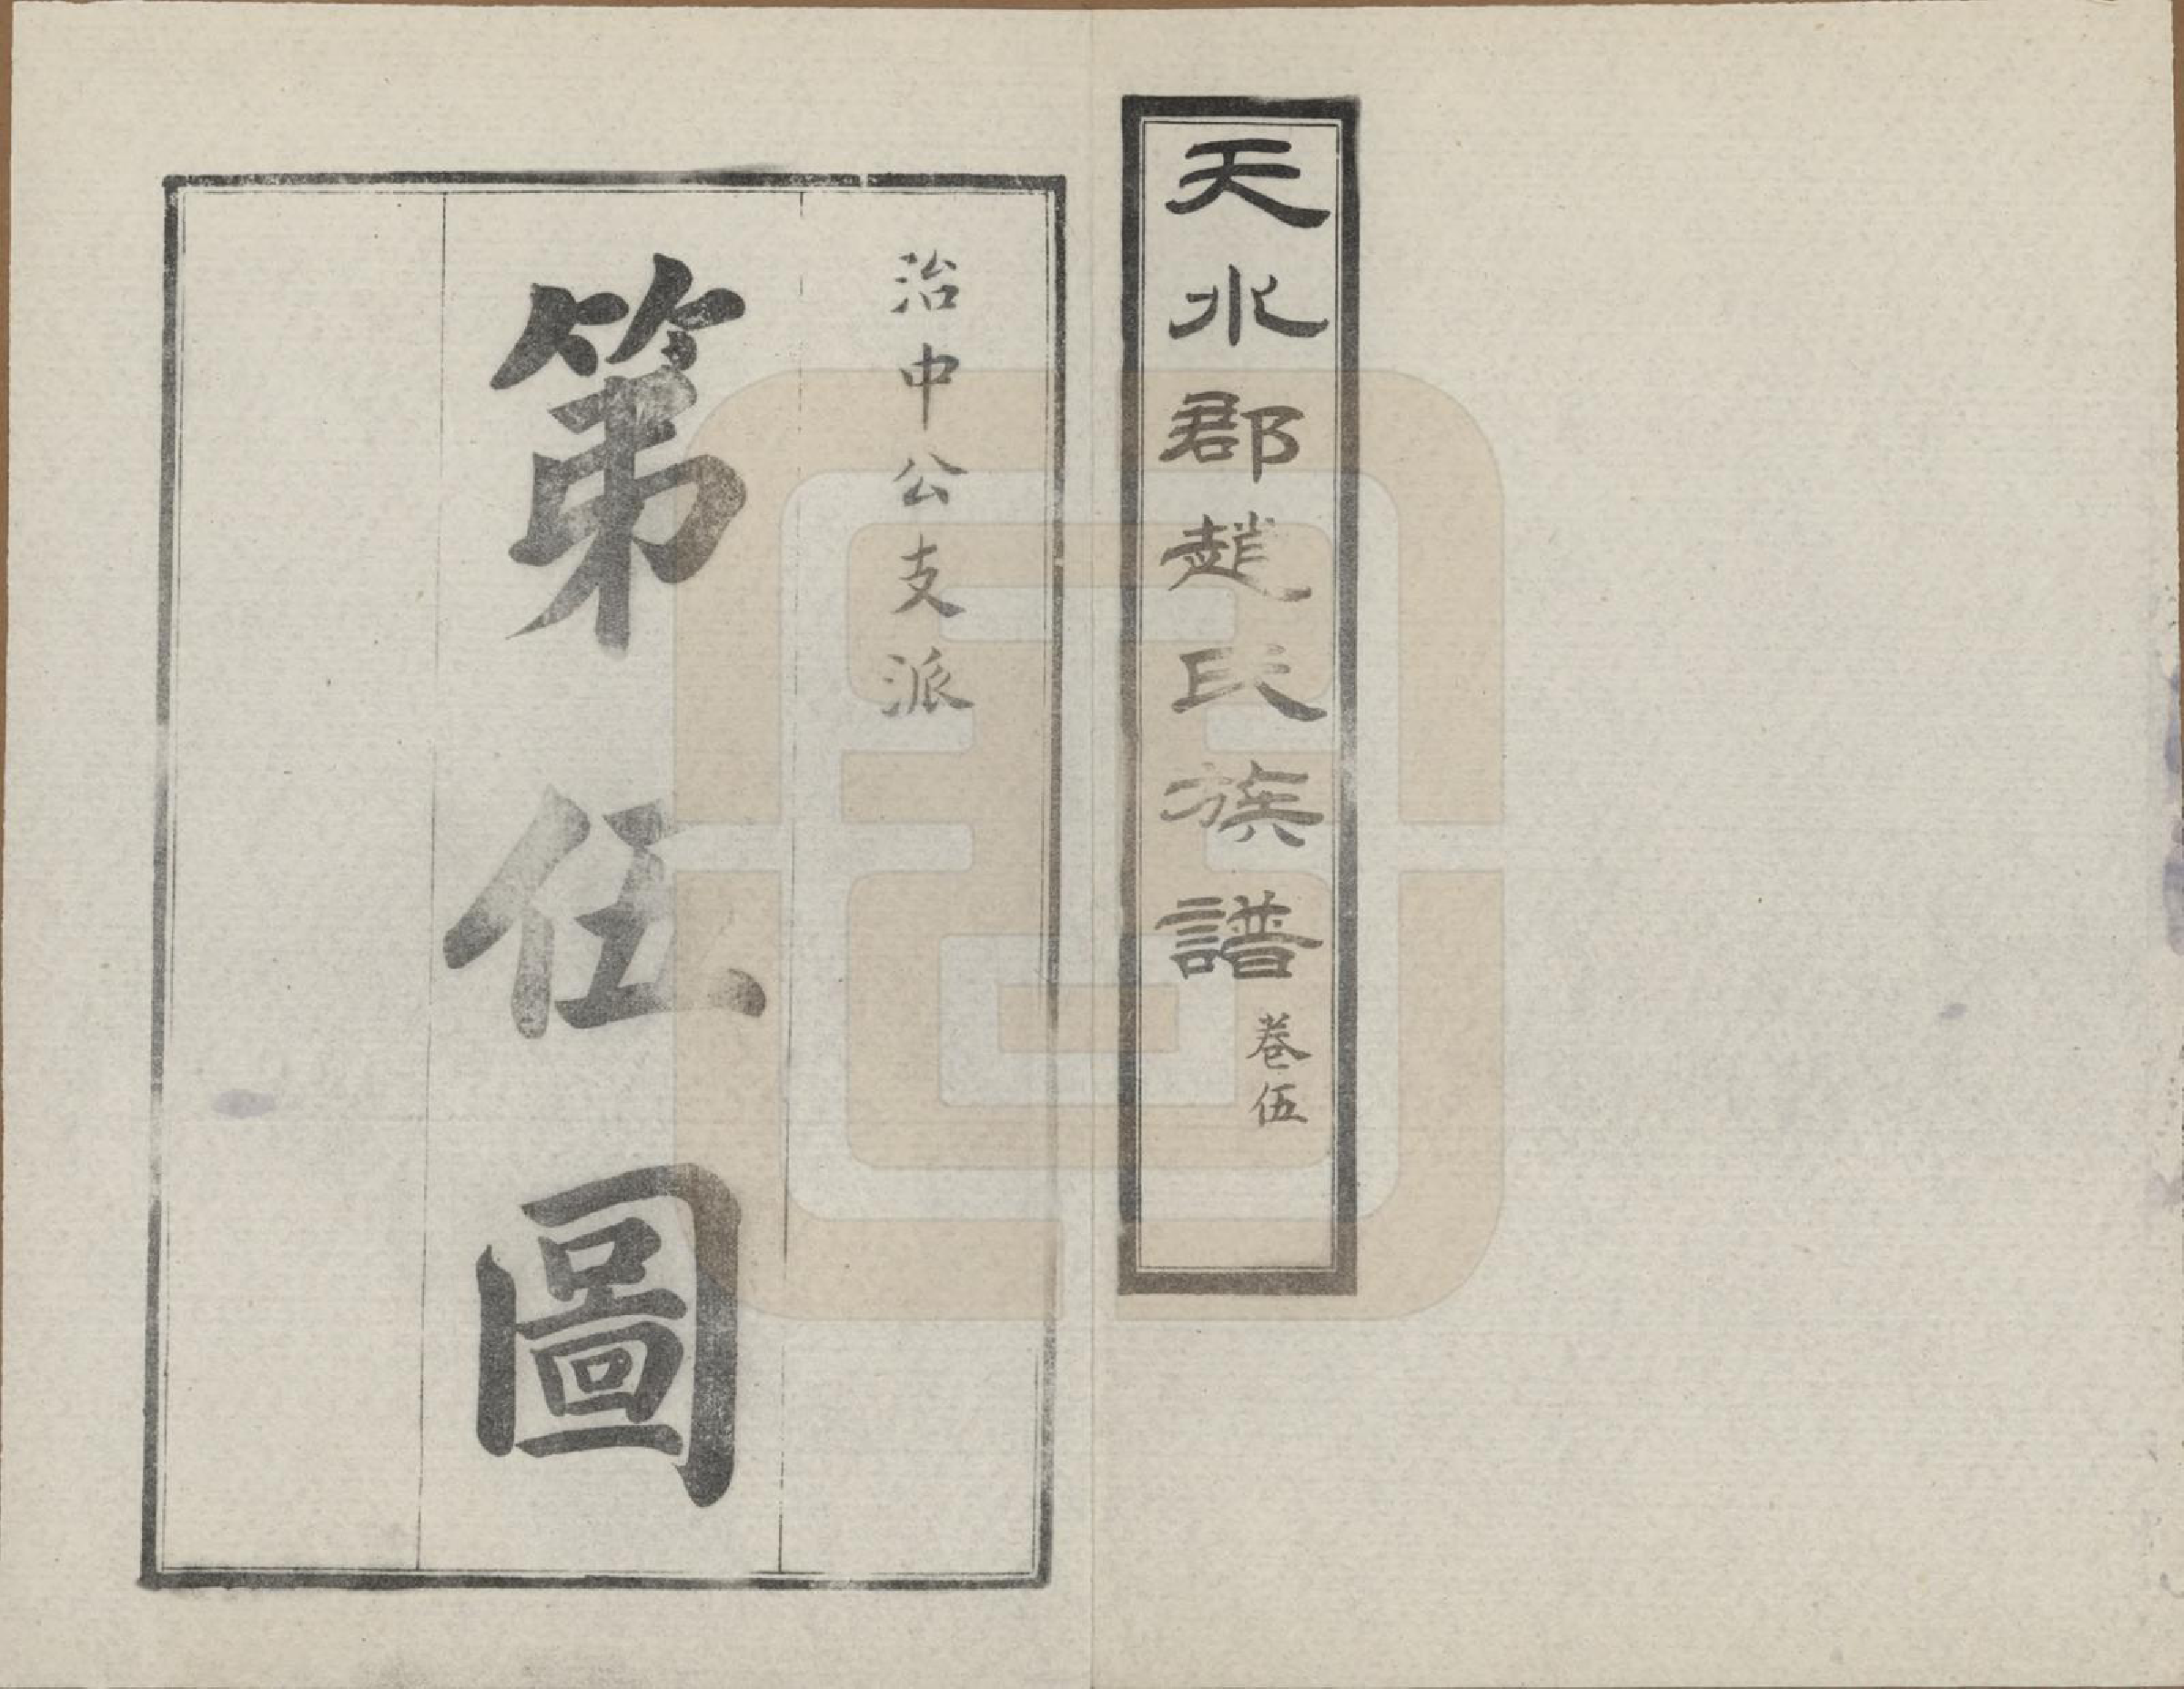 天水郡趙氏族譜
卷伍
治中公支派
第伍圖